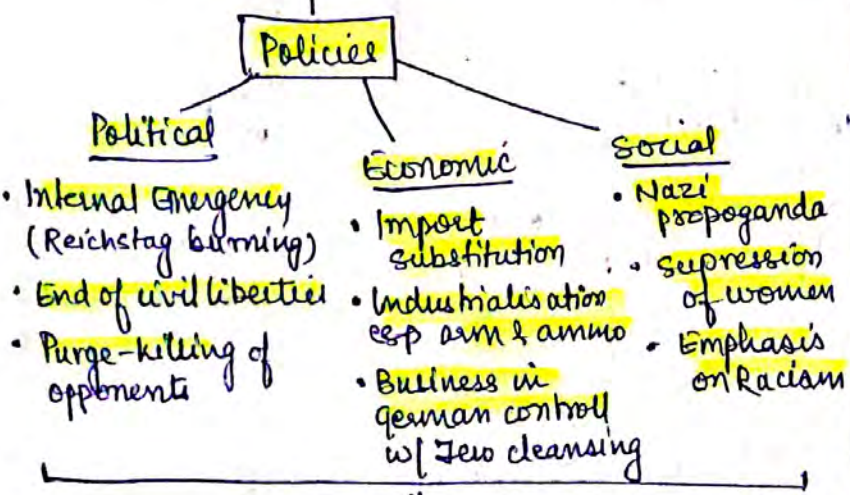 Policies
Political
• Internal Emergency
(Reichstag burning)
• End of civil liberties
• Purge-killing of
opponents
Economic
• Import
substitution
• Industrialisation
esp arm & ammo
• Business in
german controll
w/ Jew cleansing
Social
• Nazi
propoganda
• Supression
of women
• Emphasis
on Racism